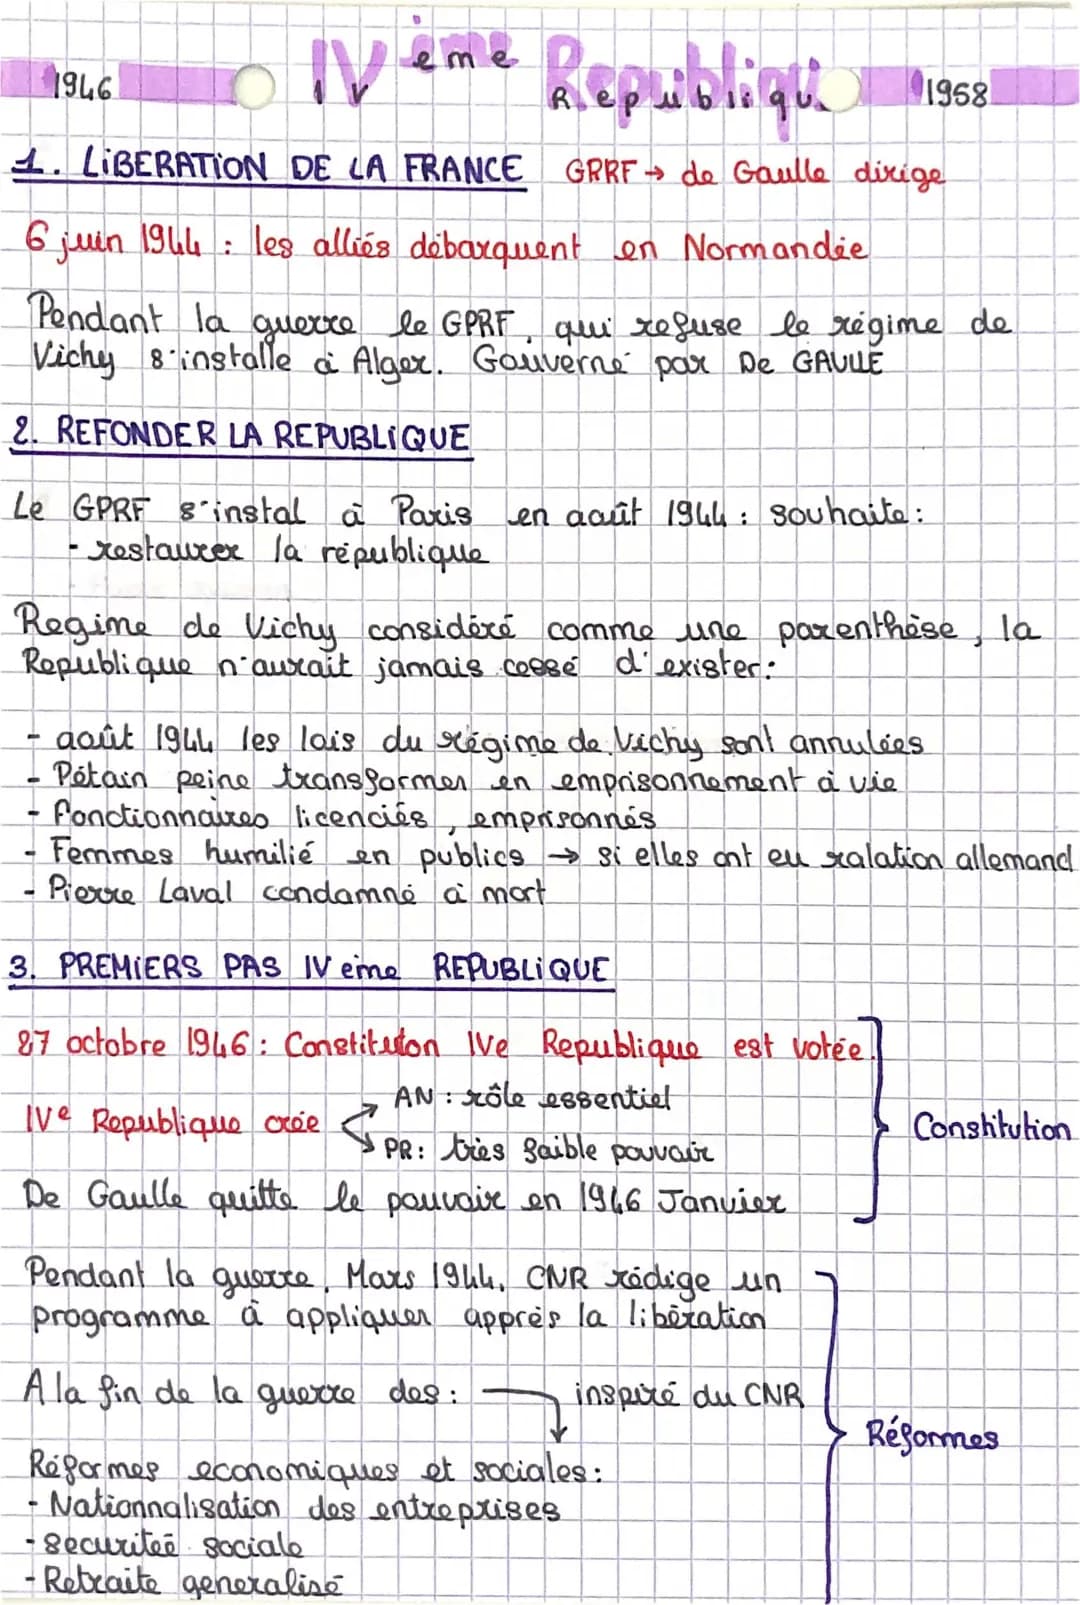 1946 IVème Republiqu 1958
1. LiBERATiON DE LA FRANCE GRRF → de Gaulle dirige
6 juin 1944 : les alliés débarquent en Normandie
Pendant la guerre le GPRF, qui refuse le régime de
Vichy s'installe à Alger. Gouverné par De GAULLE
2. REFONDER LA REPUBLiQUE
Le GPRF s'instal à Paris en août 1944 : souhaite :
- restaurer la république
Regime de Vichy considéré comme une parenthèse, la
Republique n'aurait jamais cessé d'exister :
- août 1944 les lois du régime de Vichy sont annulées
- Pétain peine transformer en emprisonnement à vie
- fonctionnaires licenciés, emprisonnés
- Femmes humilié en publics → si elles ont eu ralation allemand
- Pierre Laval condamné à mort
3. PREMiERS PAS IVeme REPUBLiQUE
27 octobre 1946 : Constituton IVe Republique est votée.
IVe Republique crée
AN : rôle essentiel
PR : très faible pouvoir
De Gaulle quitte le pouvoir en 1946 Janvier
Constitution
Pendant la guerre, Mars 1944, CNR rédige un
programme à appliquer apprés la libération
A la fin de la guerre des : inspiré du CNR
Réformes
Réformes economiques et sociales :
- Nationnalisation des entreprises
- securiteé sociale
- Retraite generalisé